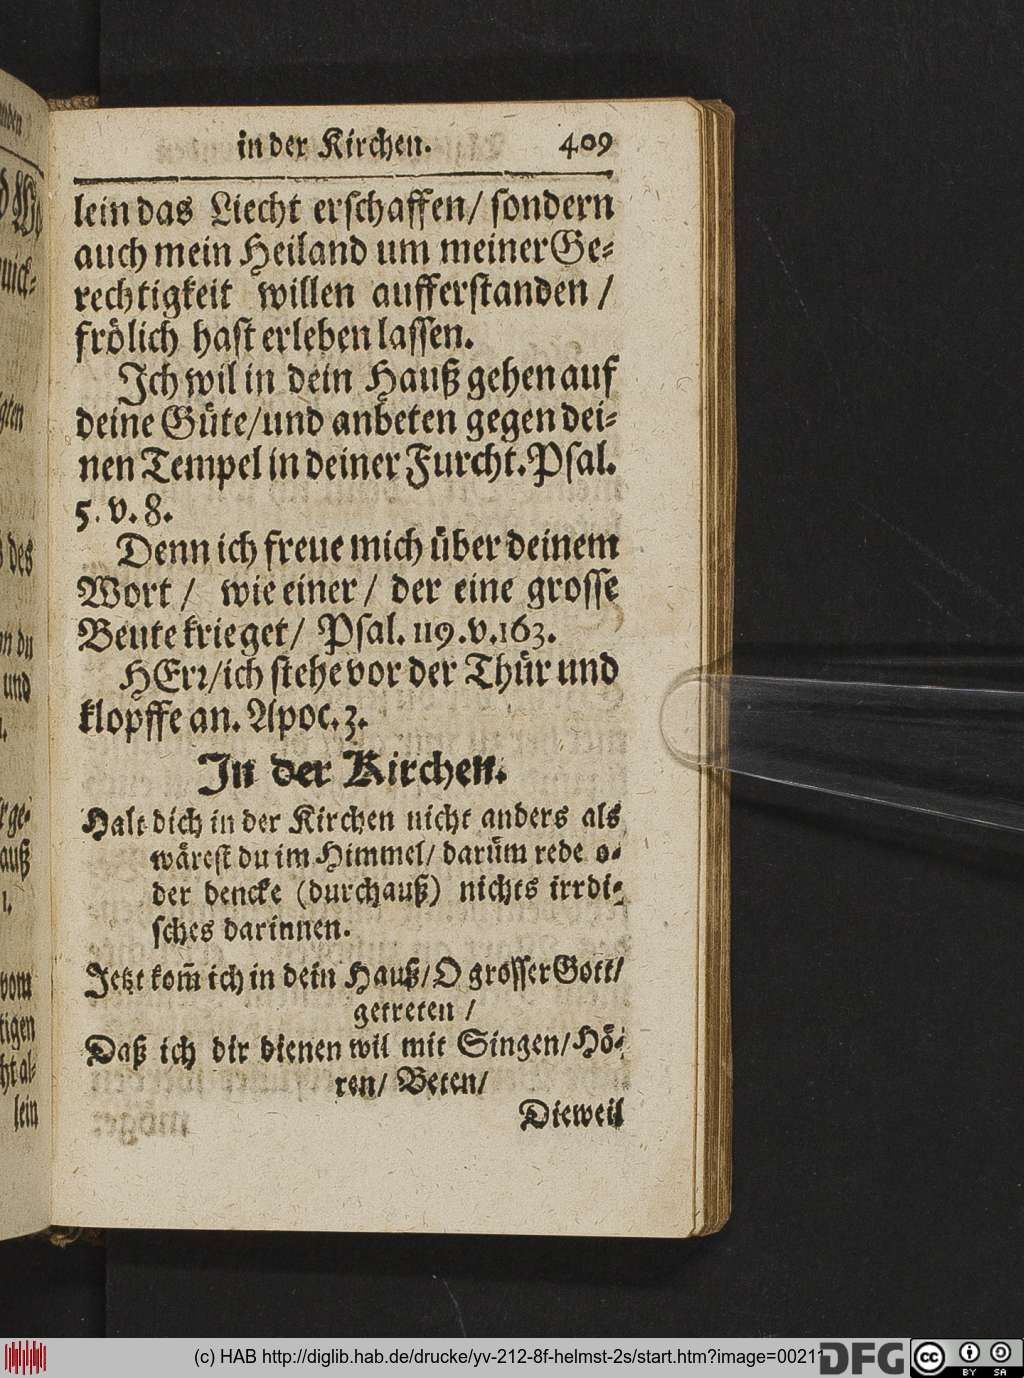 in der Kirchen. 409
lein das Liecht erschaffen/ sondern
auch mein Heiland um meiner Ge-
rechtigkeit willen aufferstanden /
frölich hast erleben lassen.
Ich wil in dein Hauß gehen auf
deine Güte/und anbeten gegen dei-
nen Tempel in deiner Furcht. Psal.
5. v. 8.
Denn ich freue mich über deinem
Wort / wie einer / der eine grosse
Beute krieget/ Psal. 119. v. 163.
HErr/ich stehe vor der Thür und
klopffe an. Apoc. 3.
In der Kirchen.
Halt dich in der Kirchen nicht anders als
wärest du im Himmel/ darüm rede o-
der dencke (durchauß) nichts irrdi-
sches darinnen.
Jetzt kom̃ ich in dein Hauß/O grosser Gott/
getreten /
Daß ich dir dienen wil mit Singen/Hö-
ren/ Beten/
Dieweil
(c) HAB http://diglib.hab.de/drucke/yv-212-8f-helmst-2s/start.htm?image=00211
DFG
cc
BY SA